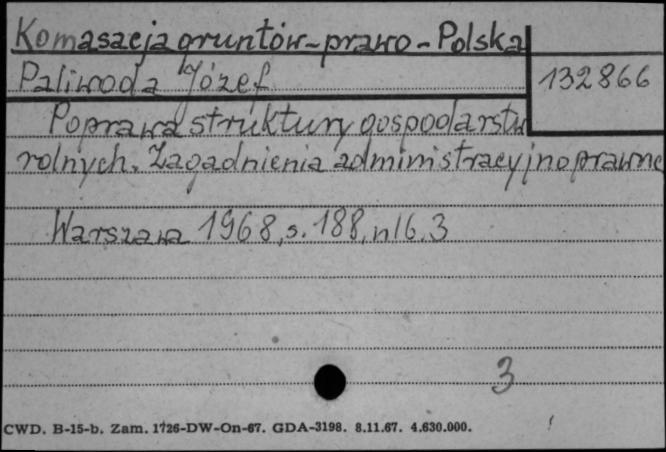 Komasacja gruntów-prawo-Polska
Paliwoda Józef
132866
Poprawa struktury gospodarstw
rolnych. Zagadnienia administracyjnoprawne
Warszawa 1968, s. 188, nlb. 3
3
CWD. B-15-b. Zam. 1726-DW-On-67. GDA-3198. 8.11.67. 4.630.000.